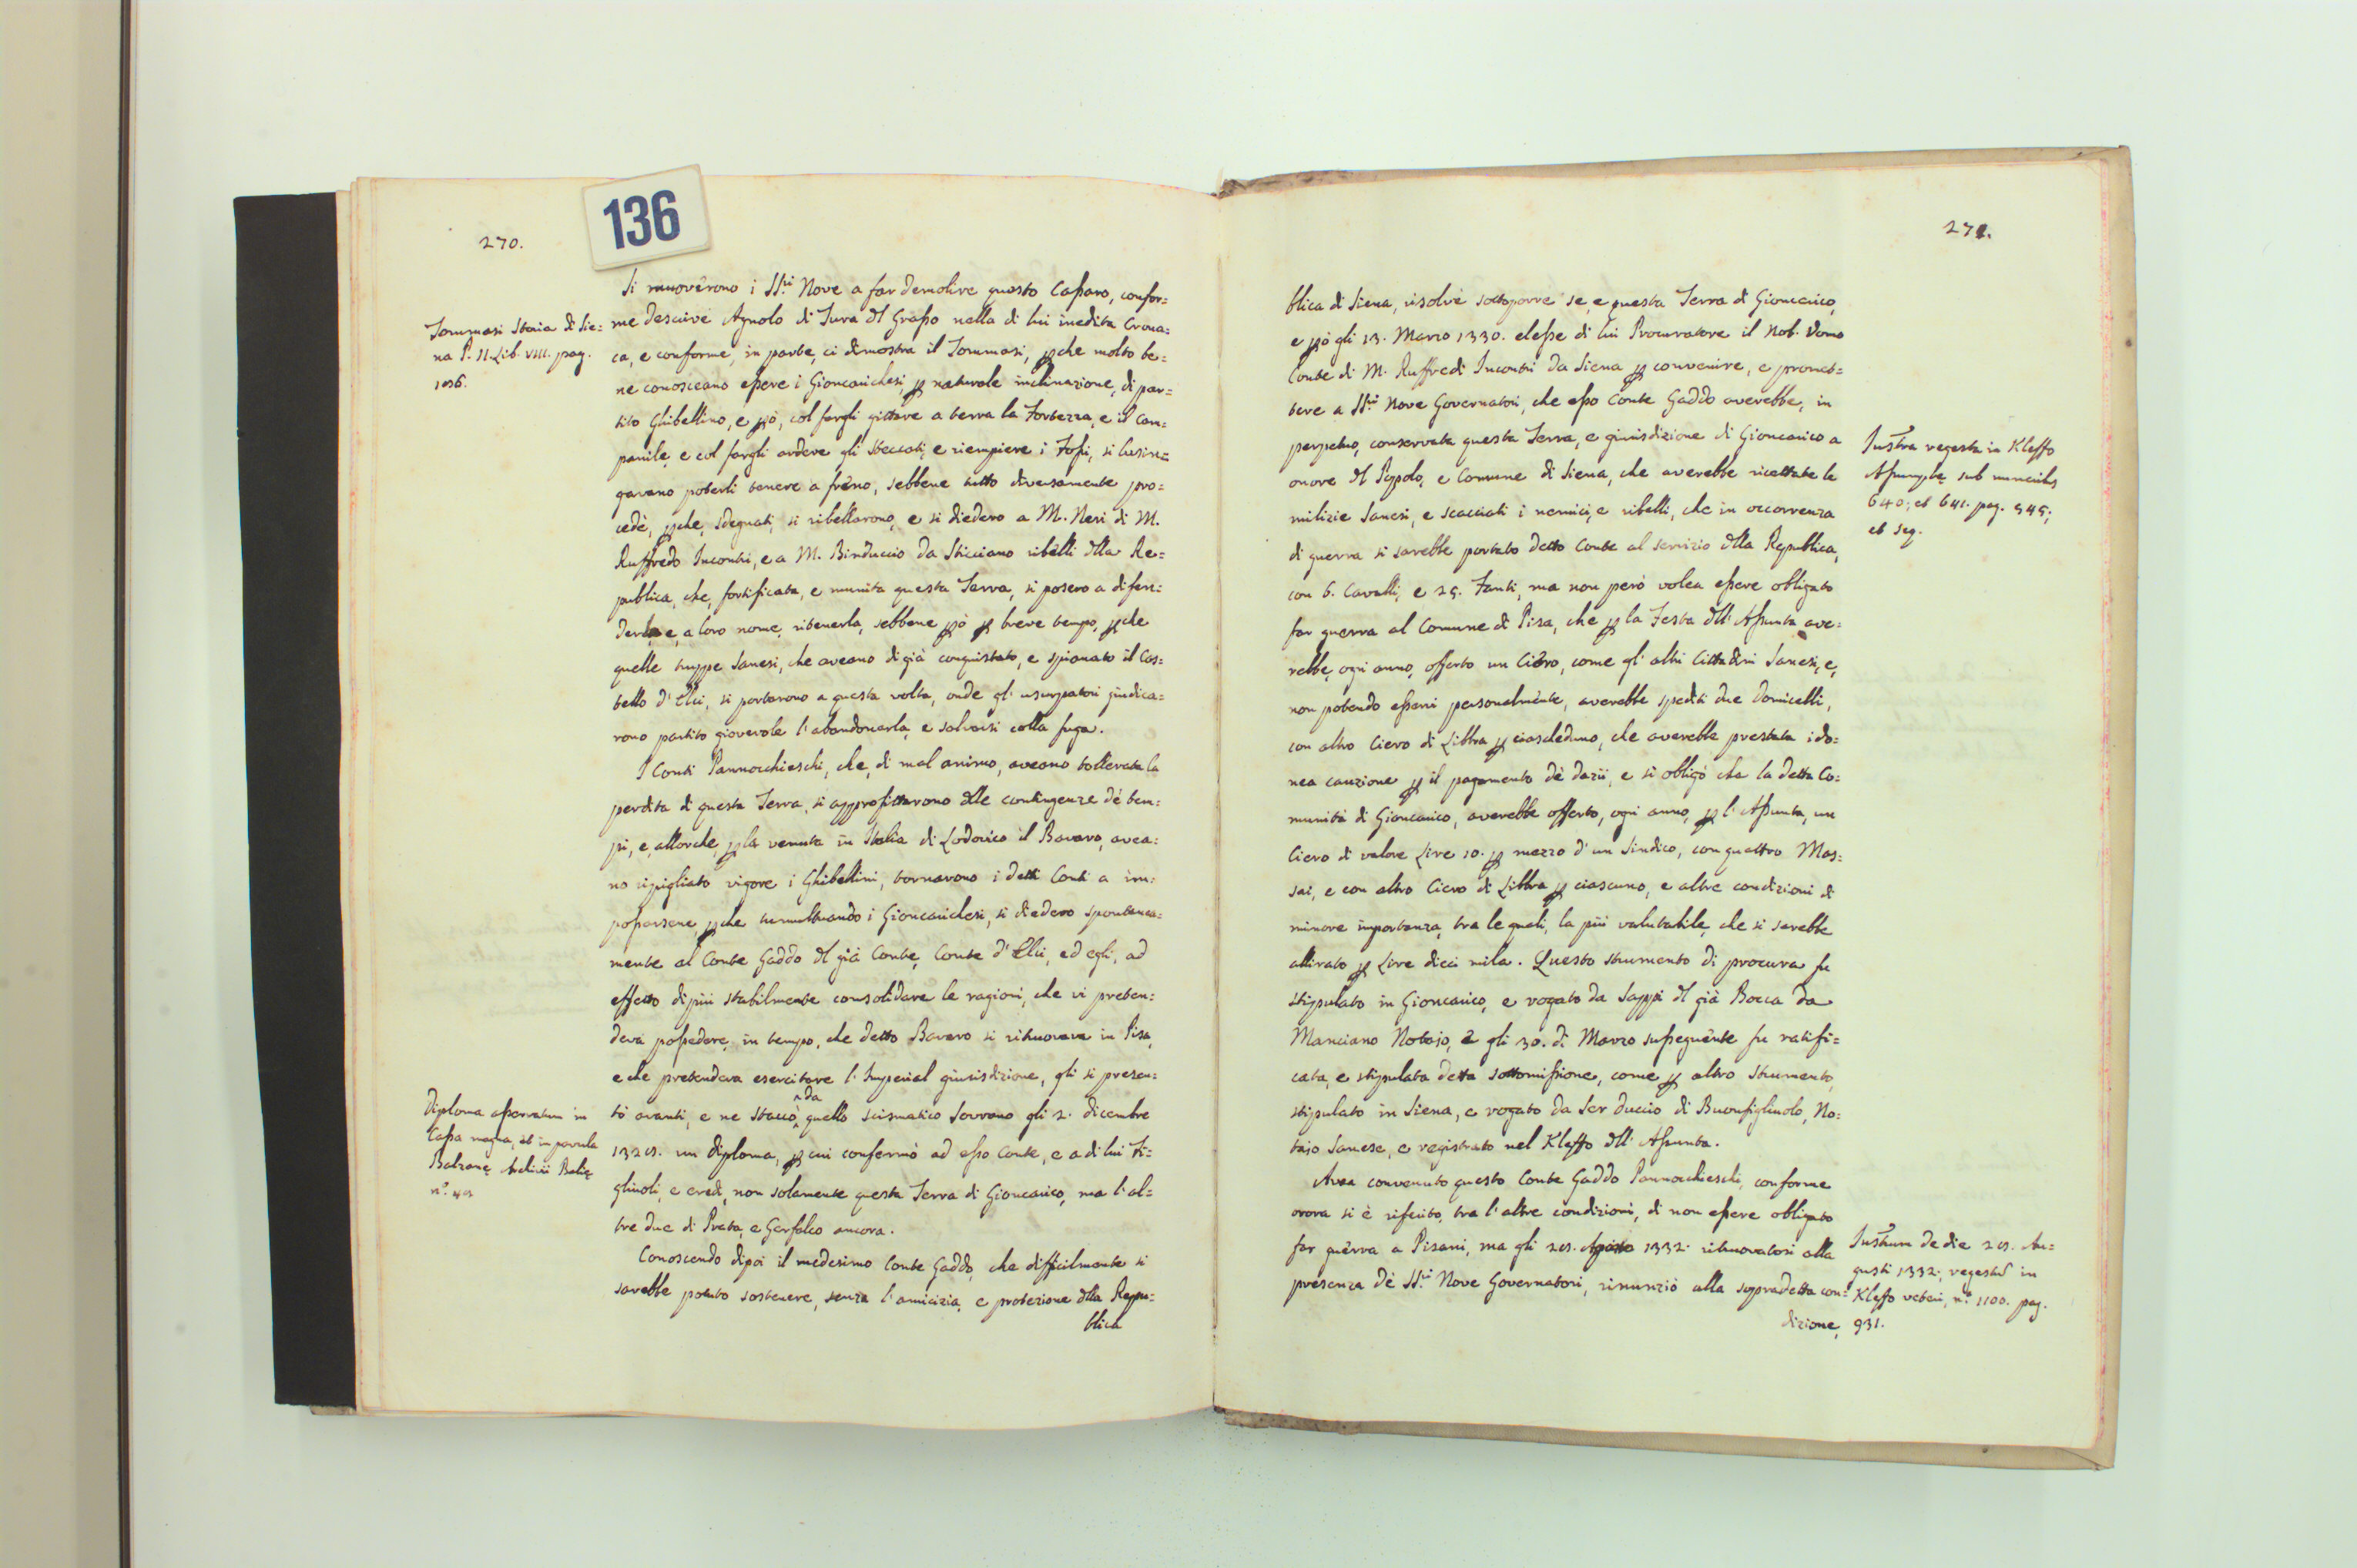 136
270.
Si muoverono i SS.ri Nove a far demolire questo Cassaro, confor=
me descrive Agnolo di Tura dl Grasso nella di lui inedita Crona=
ca, e conforme, in parte, ci dimostra il Tommasi, pche molto be=
ne conosceano essere i Gioncarichesi p naturale inclinazione, di par=
tito Ghibellino, e pò, col fargli gittare a terra la Fortezza, e il Cam=
panile, e col fargli ardere gli steccati, e riempiere i Fossi, si lusin=
gavano poterli tenere a freno, sebbene tutto diversamente pro=
cedè, pche, sdegnati, si ribellarono, e si diedero a M. Neri di M.
Ruffredo Incontri, e a M. Binduccio da Sticciano ribelli dlla Re=
publica, che, fortificata, e munita questa Terra, si posero a difen=
derla e, a loro nome, ritenerla, sebbene pò p breve tempo, pche
quelle truppe Sanesi, che aveano di già conquistato, e spianato il Cas=
tello d'Elci, si portarono a questa volta, onde gl'usurpatori giudica=
rono partito giovevole l'abandonarla, e salvarsi colla fuga.
I Conti Pannocchieschi, che, di mal animo, aveano tollerata la
perdita di questa Terra, si approfittarono dlle contingenze dè tem=
pi, e, allorche, p la venuta in Italia di Lodovico il Bavaro, avea=
no ripigliato vigore i Ghibellini, tornarono i detti Conti a im=
possarsene, pche tumultuando i Gioncarichesi, si diedero spontanea=
mente al Conte Gaddo dl già Conte, Conte d'Elci, ed egli, ad
effetto di più stabilmente consolidare le ragioni, che vi preten=
deva possedere, in tempo, che detto Bavaro si ritruovava in Pisa,
e che pretendeva esercitare l'Imperial giurisdizione, gli si presen=
tò avanti, e ne staccò da quello scismatico Sovrano gli 2. dicembre
1328. un diploma, p cui confermò ad esso Conte, e a di lui Fi=
gliuoli, e eredi, non solamente questa Terra di Gioncarico, ma l'al=
tre due di Prata, e Gerfalco ancora.
Conoscendo dipoi il medesimo Conte Gaddo, che difficilmente si
sarebbe potuto sostenere, senza l'amicizia, e protezione dlla Repu=
blica
Tommasi Storia di Sie=
na P. II. Lib. VIII. pag.
Diploma asservatum in
Cassa magna, et in parvula
Balzanę Archivii Balię
271.
blica di Siena, risolvè sottoporre se, e questa Terra di Gioncarico,
e pò gli 13. Marzo 1330. elesse di lui Procuratore il Nob. Uomo
Conte di M. Ruffredi Incontri da Siena p convenire, e promet=
tere a SS.ri Nove Governatori, che esso Conte Gaddo averebbe, in
perpetuo, conservata questa Terra, e giurisdizione di Gioncarico a
onore dl Popolo, e Comune di Siena, che averebbe ricettate le
milizie Sanesi, e scacciati i nemici, e ribelli, che in occorrenza
di guerra si sarebbe portato detto Conte al servizio dlla Republica,
con 6. Cavalli, e 25. Fanti, ma non però volea essere obligato
far guerra al Comune di Pisa, che p la Festa dll'Assunta ave=
rebbe, ogni anno, offerto un Ciero, come gl'altri Cittadini Sanesi, e,
non potendo esservi personalmente, averebbe spediti due Domicelli,
con altro Ciero di Libbra p ciascheduno, che averebbe prestata ido=
nea cauzione p il pagamento dè dazii, e si obligò che la detta Co=
munità di Gioncarico, averebbe offerto, ogni anno, p l'Assunta, un
Ciero di valore Lire 10. p mezzo d'un Sindico, con quattro Mas=
sai, e con altro Ciero di Libbra p ciascuno, e altre condizioni di
minore importanza, tra le quali, la più valutabile, che si sarebbe
allirato p Lire dieci mila. Questo strumento di procura fu
stipulato in Gioncarico, e rogato da Sappi dl già Bocca da
Manciano Notajo, e gli 30. di Marzo susseguente fu ratifi=
cata, e stipulata detta sottomissione, come p altro strumento,
stipulato in Siena, e rogato da Ser Duccio di Buonfigliuolo, No=
tajo Sanese, e registrato nel Kleffo dll'Assunta.
Avea convenuto questo Conte Gaddo Pannocchieschi, conforme
orora si è riferito, tra l'altre condizioni, di non essere obligato
far guerra a Pisani, ma gli 28. Agosto 1332. ritruovatosi alla
presenza dè SS.ri Nove Governatori, rinunziò alla sopradetta con=
dizione,
Instra regesta in Kleffo
Assumptę sub numeris
640, et 641. pag. 545;
et seg.
Instrum de die 28. Au=
gusti 1332; regestū in
Kleffo veteri, n.o 1100. pag.
931.